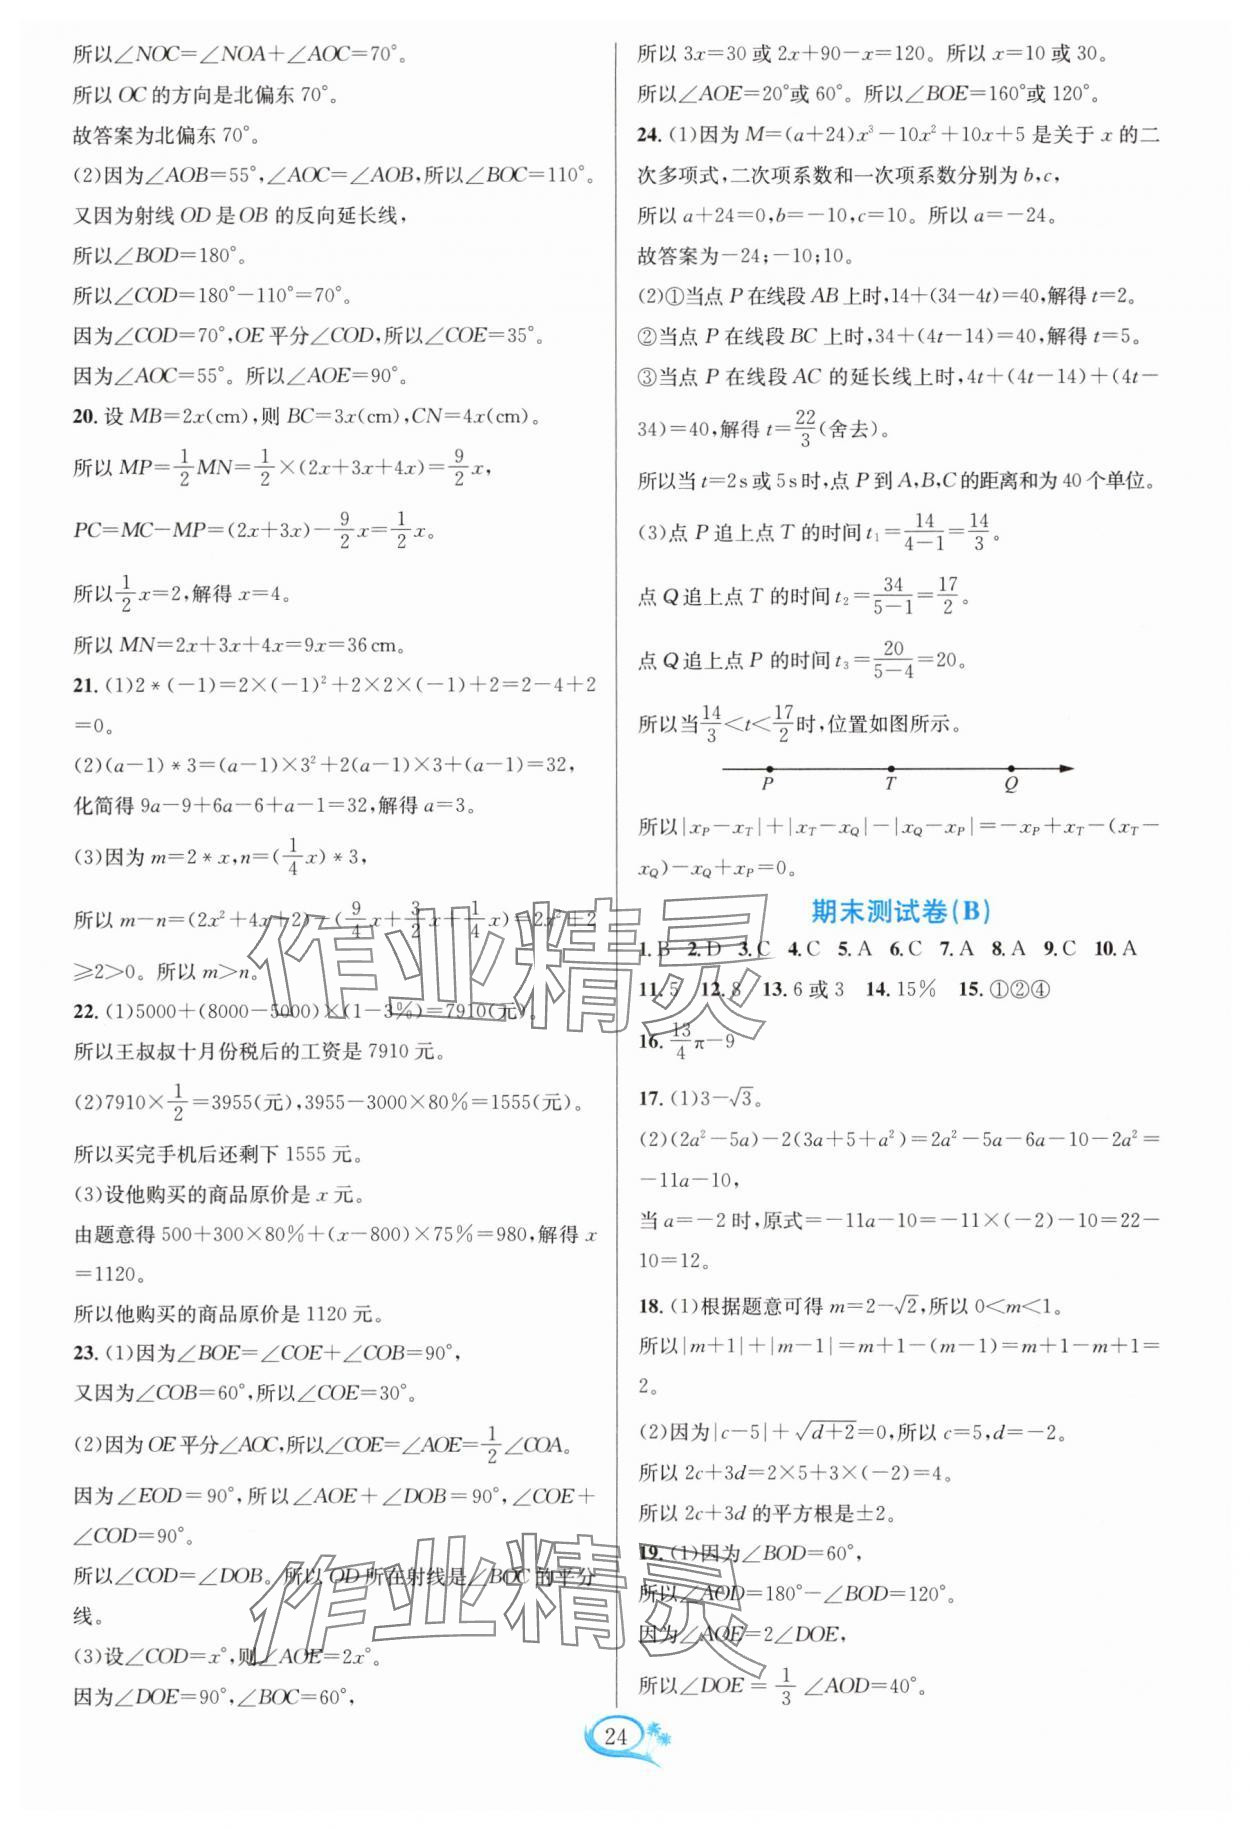 所以∠NOC=∠NOA+∠AOC=70°。
所以OC的方向是北偏东70°。
故答案为北偏东70°。
(2)因为∠AOB=55°,∠AOC=∠AOB,所以∠BOC=110°。
又因为射线OD是OB的反向延长线,
所以∠BOD=180°。
所以∠COD=180°-110°=70°。
因为∠COD=70°,OE平分∠COD,所以∠COE=35°。
因为∠AOC=55°。所以∠AOE=90°。
20. 设MB=2x(cm),则BC=3x(cm),CN=4x(cm)。
所以MP=1/2MN=1/2×(2x+3x+4x)=9/2x,
PC=MC-MP=(2x+3x)-9/2x=1/2x。
所以1/2x=2,解得x=4。
所以MN=2x+3x+4x=9x=36cm。
21. (1)2*(-1)=2×(-1)²+2×2×(-1)+2=2-4+2
=0。
(2)(a-1)*3=(a-1)×3²+2(a-1)×3+(a-1)=32,
化简得9a-9+6a-6+a-1=32,解得a=3。
(3)因为m=2*x,n=(1/4x)*3,
所以m-n=(2x²+4x+2)-(9/4x+3/2x+1/4x)=2x²+2
≥2>0。所以m>n。
22. (1)5000+(8000-5000)×(1-3%)=7910(元)。
所以王叔叔十月份税后的工资是7910元。
(2)7910×1/2=3955(元),3955-3000×80%=1555(元)。
所以买完手机后还剩下1555元。
(3)设他购买的商品原价是x元。
由题意得500+300×80%+(x-800)×75%=980,解得x
=1120。
所以他购买的商品原价是1120元。
23. (1)因为∠BOE=∠COE+∠COB=90°,
又因为∠COB=60°,所以∠COE=30°。
(2)因为OE平分∠AOC,所以∠COE=∠AOE=1/2∠COA。
因为∠EOD=90°,所以∠AOE+∠DOB=90°,∠COE+
∠COD=90°。
所以∠COD=∠DOB。所以OD所在射线是∠BOC的平分
线。
(3)设∠COD=x°,则∠AOE=2x°。
因为∠DOE=90°,∠BOC=60°,
所以3x=30或2x+90-x=120。所以x=10或30。
所以∠AOE=20°或60°。所以∠BOE=160°或120°。
24. (1)因为M=(a+24)x³-10x²+10x+5是关于x的二
次多项式,二次项系数和一次项系数分别为b,c,
所以a+24=0,b=-10,c=10。所以a=-24。
故答案为-24;-10;10。
(2)①当点P在线段AB上时,14+(34-4t)=40,解得t=2。
②当点P在线段BC上时,34+(4t-14)=40,解得t=5。
③当点P在线段AC的延长线上时,4t+(4t-14)+(4t-
34)=40,解得t=22/3(舍去)。
所以当t=2s或5s时,点P到A,B,C的距离和为40个单位。
(3)点P追上点T的时间t₁=14/(4-1)=14/3。
点Q追上点T的时间t₂=34/(5-1)=17/2。
点Q追上点P的时间t₃=20/(5-4)=20。
所以当14/3<t<17/2时,位置如图所示。
P T Q
所以|x_P-x_T|+|x_T-x_Q|-|x_Q-x_P|=-x_P+x_T-(x_T-
x_Q)-x_Q+x_P=0。
期末测试卷(B)
1. B 2. D 3. C 4. C 5. A 6. C 7. A 8. A 9. C 10. A
11. 5 12. 8 13. 6或3 14. 15% 15. ①②④
16. 13/4π-9
17. (1)3-√3。
(2)(2a²-5a)-2(3a+5+a²)=2a²-5a-6a-10-2a²=
-11a-10,
当a=-2时,原式=-11a-10=-11×(-2)-10=22-
10=12。
18. (1)根据题意可得m=2-√2,所以0<m<1。
所以|m+1|+|m-1|=m+1-(m-1)=m+1-m+1=
2。
(2)因为|c-5|+√(d+2)=0,所以c=5,d=-2。
所以2c+3d=2×5+3×(-2)=4。
所以2c+3d的平方根是±2。
19. (1)因为∠BOD=60°,
所以∠AOD=180°-∠BOD=120°。
因为∠AOE=2∠DOE,
所以∠DOE=1/3∠AOD=40°。
作业精灵
作业精灵
24